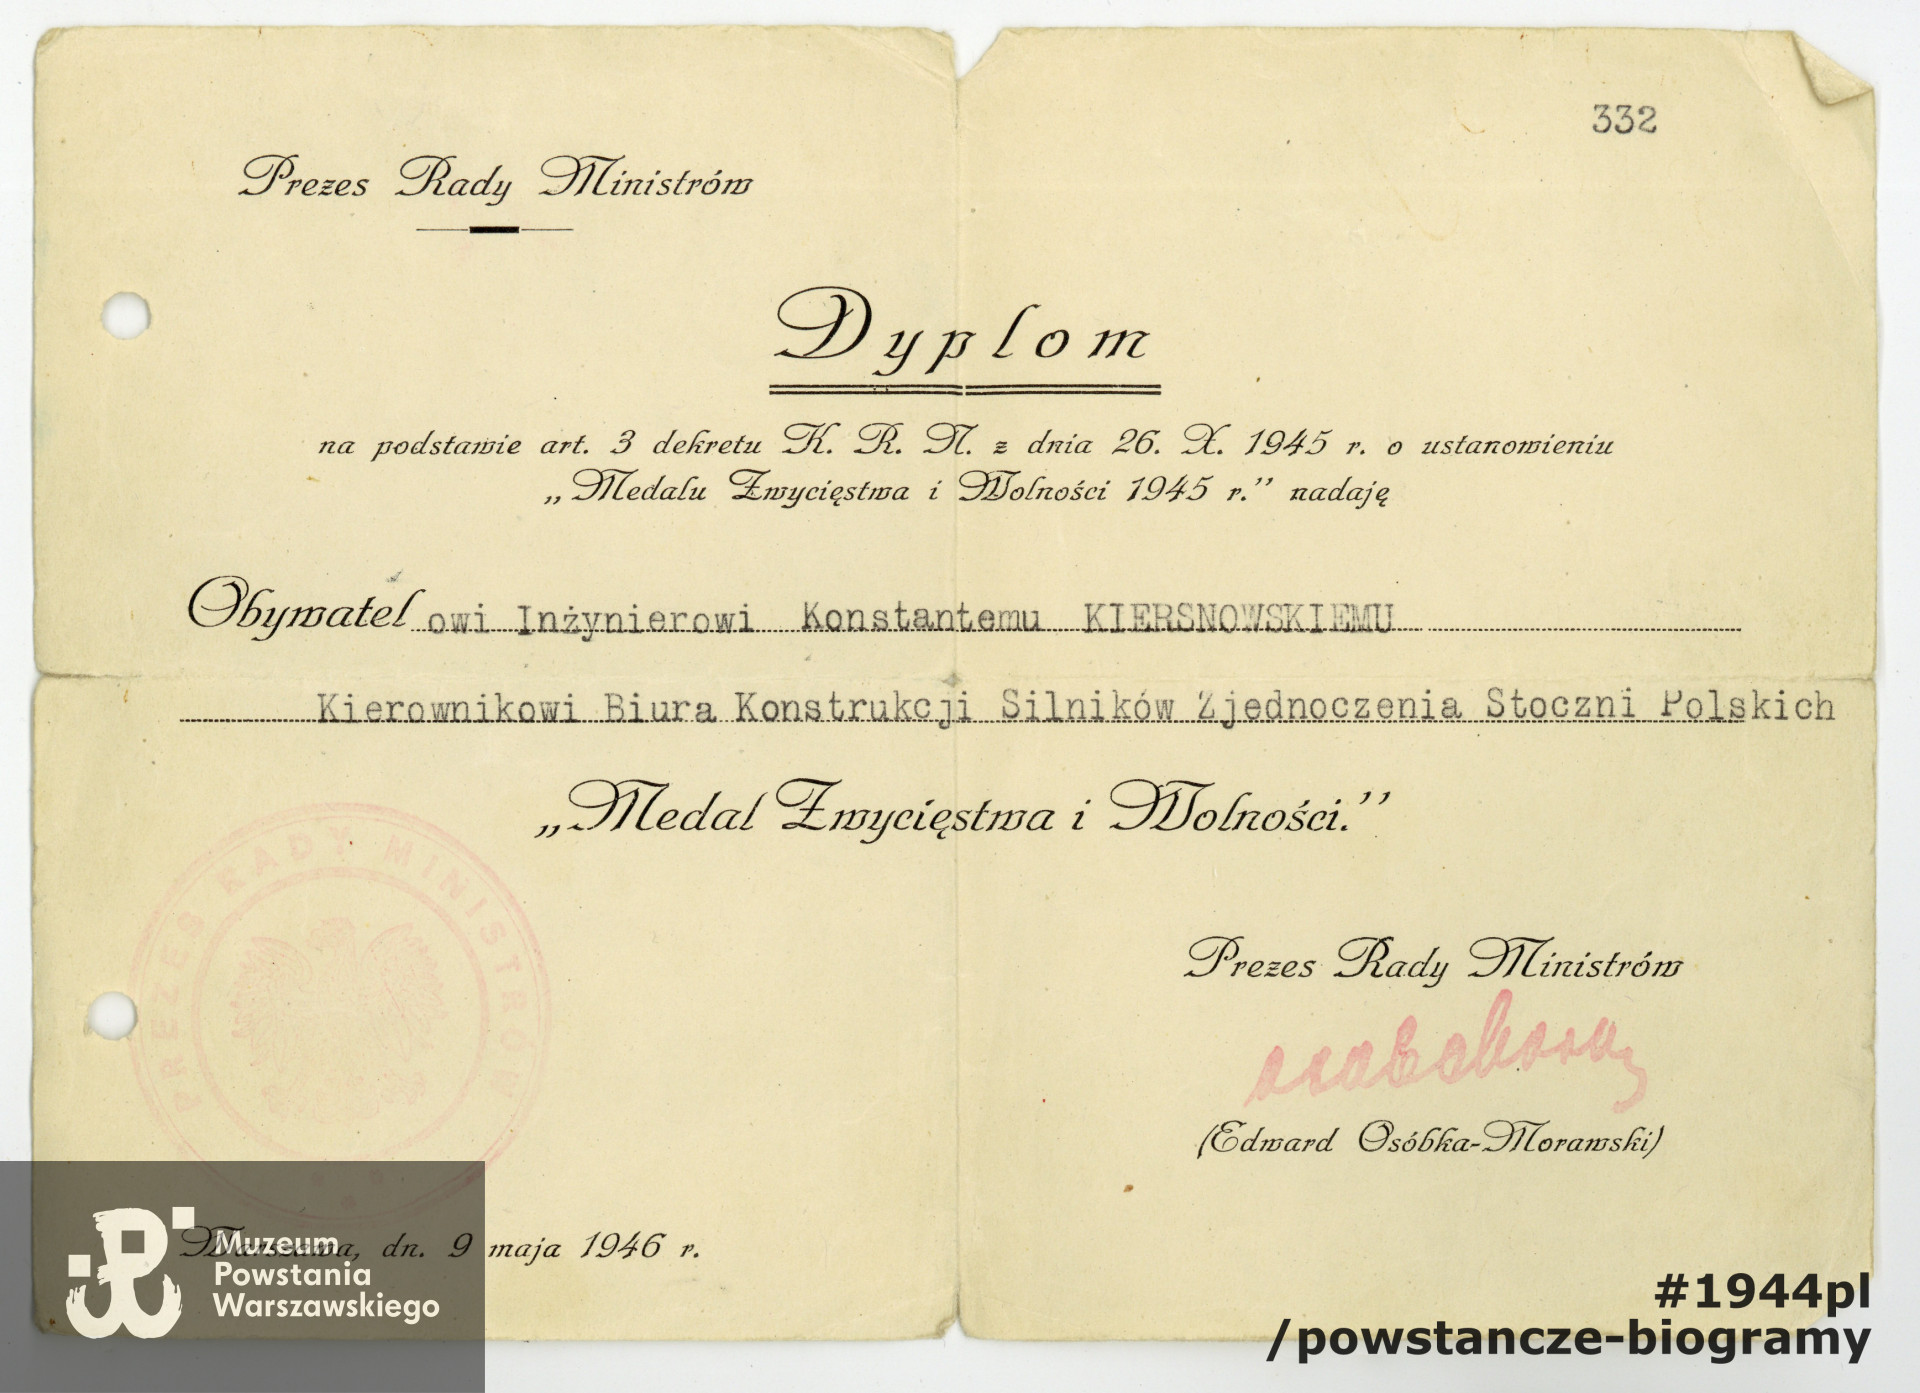 332
Prezes Rady Ministrów
Dyplom
na podstawie art. 3 dekretu K. R. N. z dnia 26. X. 1945 r. o ustanowieniu
„Medalu Zwycięstwa i Wolności 1945 r.” nadaję
Obywatelowi Inżynierowi Konstantemu KIERSNOWSKIEMU
Kierownikowi Biura Konstrukcji Silników Zjednoczenia Stoczni Polskich
„Medal Zwycięstwa i Wolności.”
PREZES RADY MINISTRÓW
Prezes Rady Ministrów
(Edward Osóbka-Morawski)
Warszawa, dn. 9 maja 1946 r.
Muzeum
Powstania
Warszawskiego
#1944pl
/powstancze-biogramy